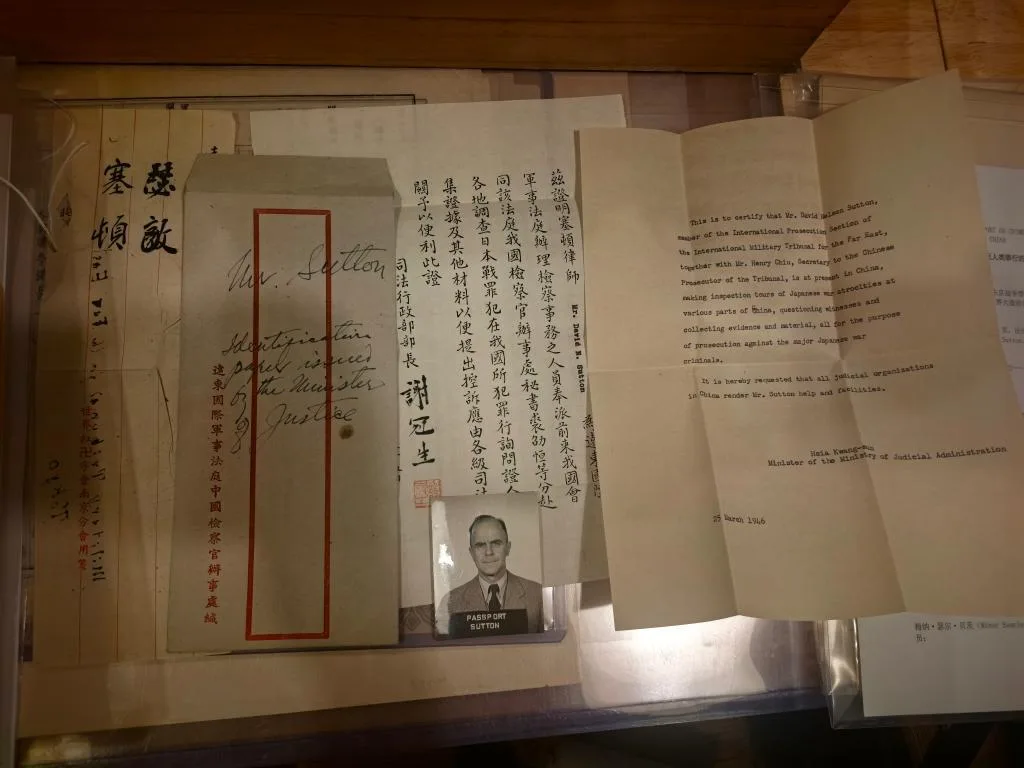 瑟敵
塞頓
世界紅卍字會南京分會用箋
Mr. Sutton
Identification
paper issued
by the Minister
of Justice
遠東國際軍事法庭中國檢察官辦事處緘
茲證明塞頓律師 Mr. David N. Sutton
軍事法庭辦理檢察事務之人員奉派前來我國會
同該法庭我國檢察官辦事處秘書裘劭恒等分赴
各地調查日本戰罪犯在我國所犯罪行詢問證人
集證據及其他材料以便提出控訴應由各級司法
關予以便利此證
司法行政部部長 謝冠生
PASSPORT
SUTTON
This is to certify that Mr. David Nelson Sutton,
member of the International Prosecution Section of
the International Military Tribunal for the Far East,
together with Mr. Henry Chiu, Secretary to the Chinese
Prosecutor of the Tribunal, is at present in China,
making inspection tours of Japanese war atrocities at
various parts of China, questioning witnesses and
collecting evidence and material, all for the purpose
of prosecution against the major Japanese war
criminals.
It is hereby requested that all judicial organizations
in China render Mr. Sutton help and facilities.
Hsia Kwang-sun
Minister of the Ministry of Judicial Administration
25 March 1946
梅纳·瑟尔·贝茨
员：